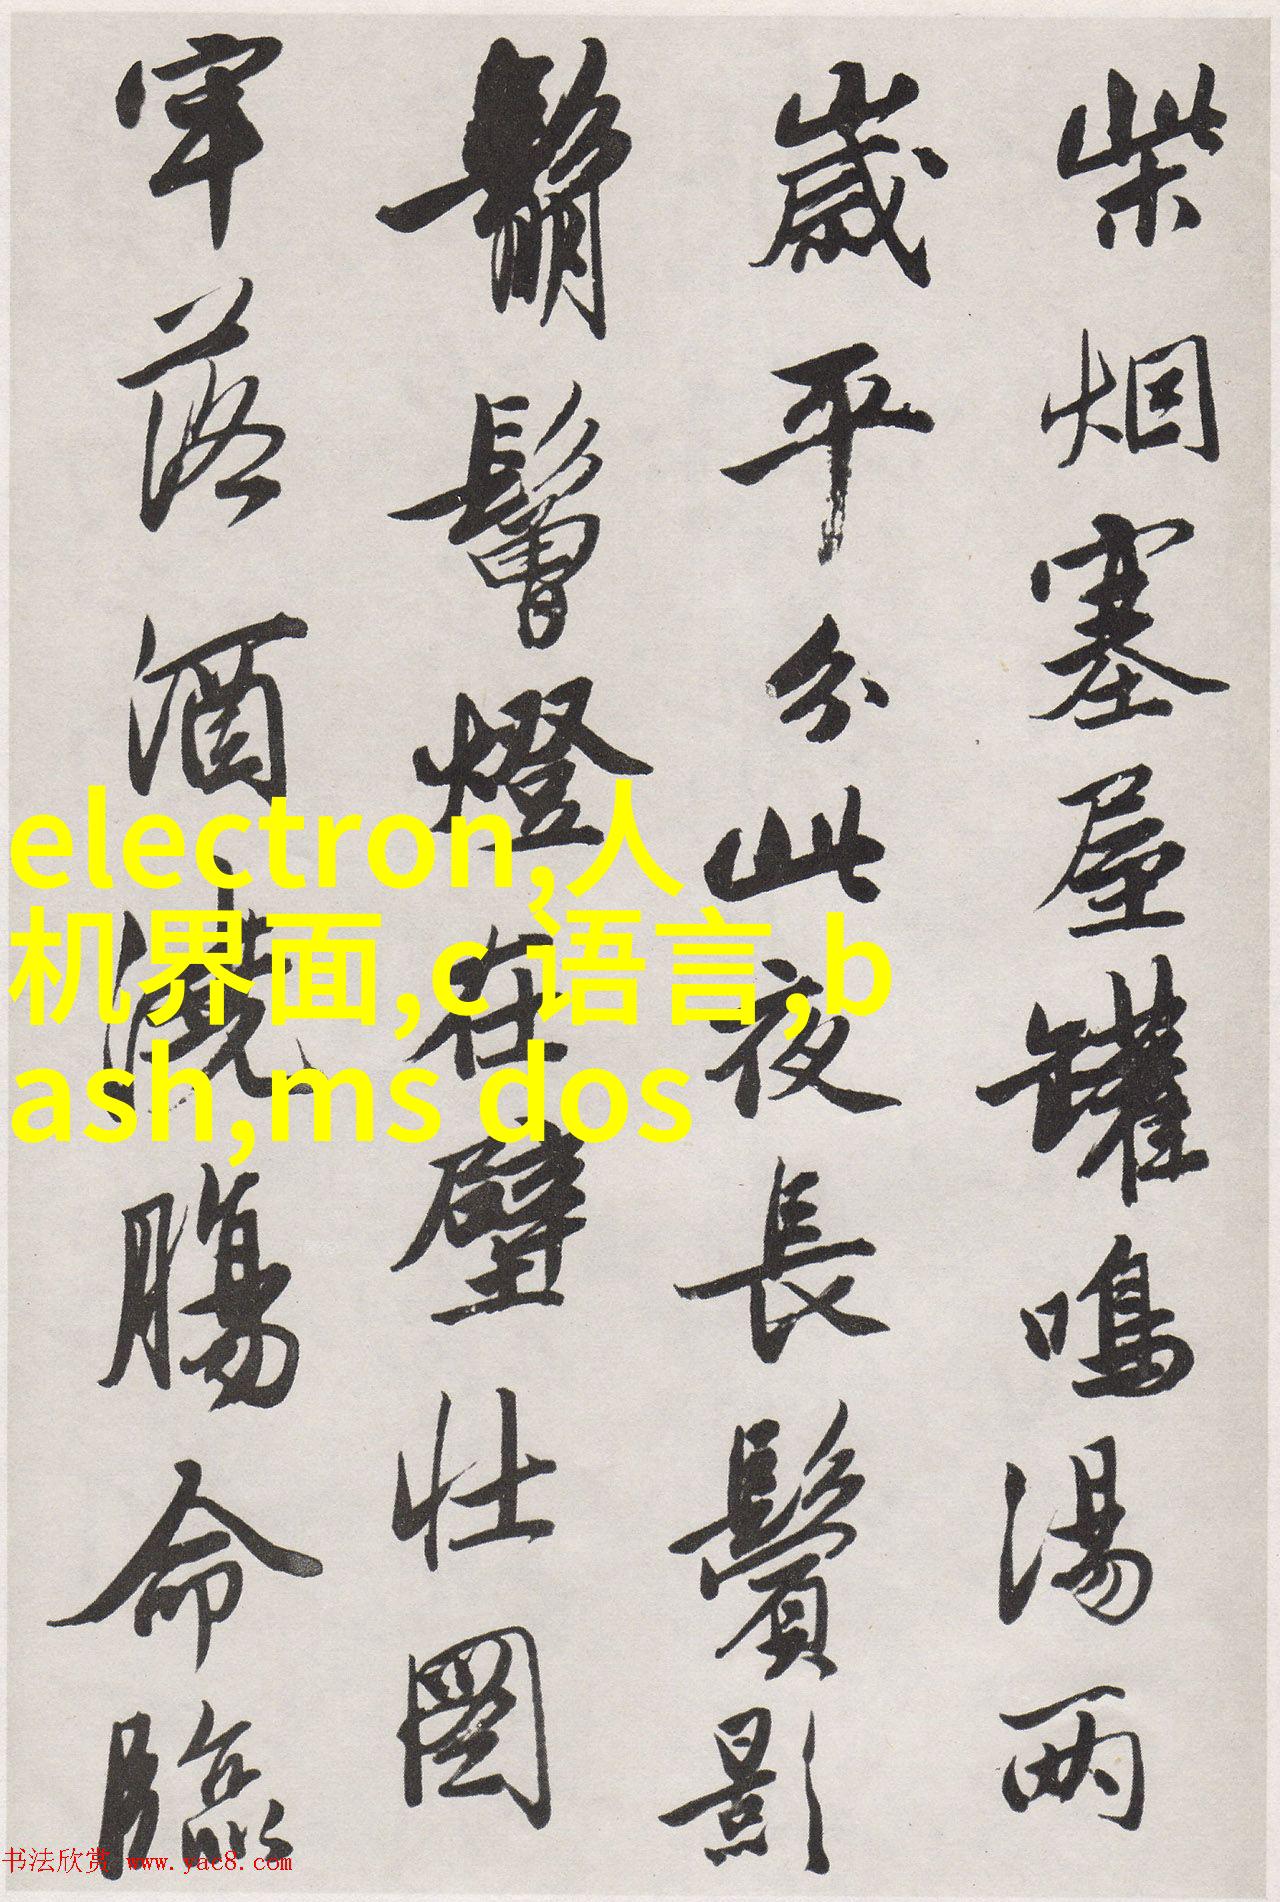 柴烟塞屋罐鳴湯两
歲平分此夜長鬢影
鬅鬙燈在壁壮圖
牢落酒澆腸命臨
electron,人
机界面,c 语言,b
ash,ms dos
书法欣赏 www.yac8.com